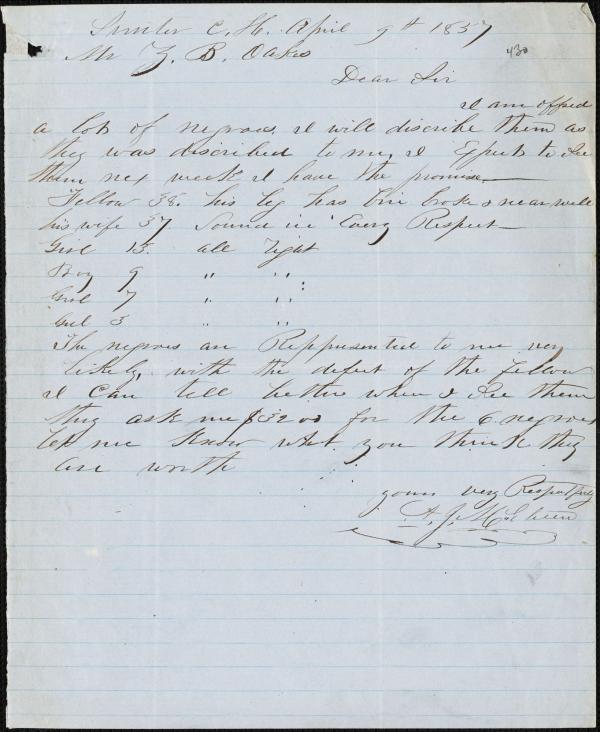 Sumter C. H. April 9th 1857
430
Mr Z. B. Oakes
Dear Sir
I am offred
a lot of negroes. I will discribe them as
they was discribed to me, I Expect to See
them nex week I have the promise
Fellow 38. his leg has bin broke & near well
his wife 37 Sound in Every Respect
Girl 13. all right
Boy 9 " "
Girl 7 " "
Girl 3 " "
The negroes are Reppresented to me very
likely, with the defect of the fellow
I can tell better when I See them
they ask me $3200 for the 6. negroes
let me Know what you think they
are worth
yours very Respectfuly
A. J. McElveen